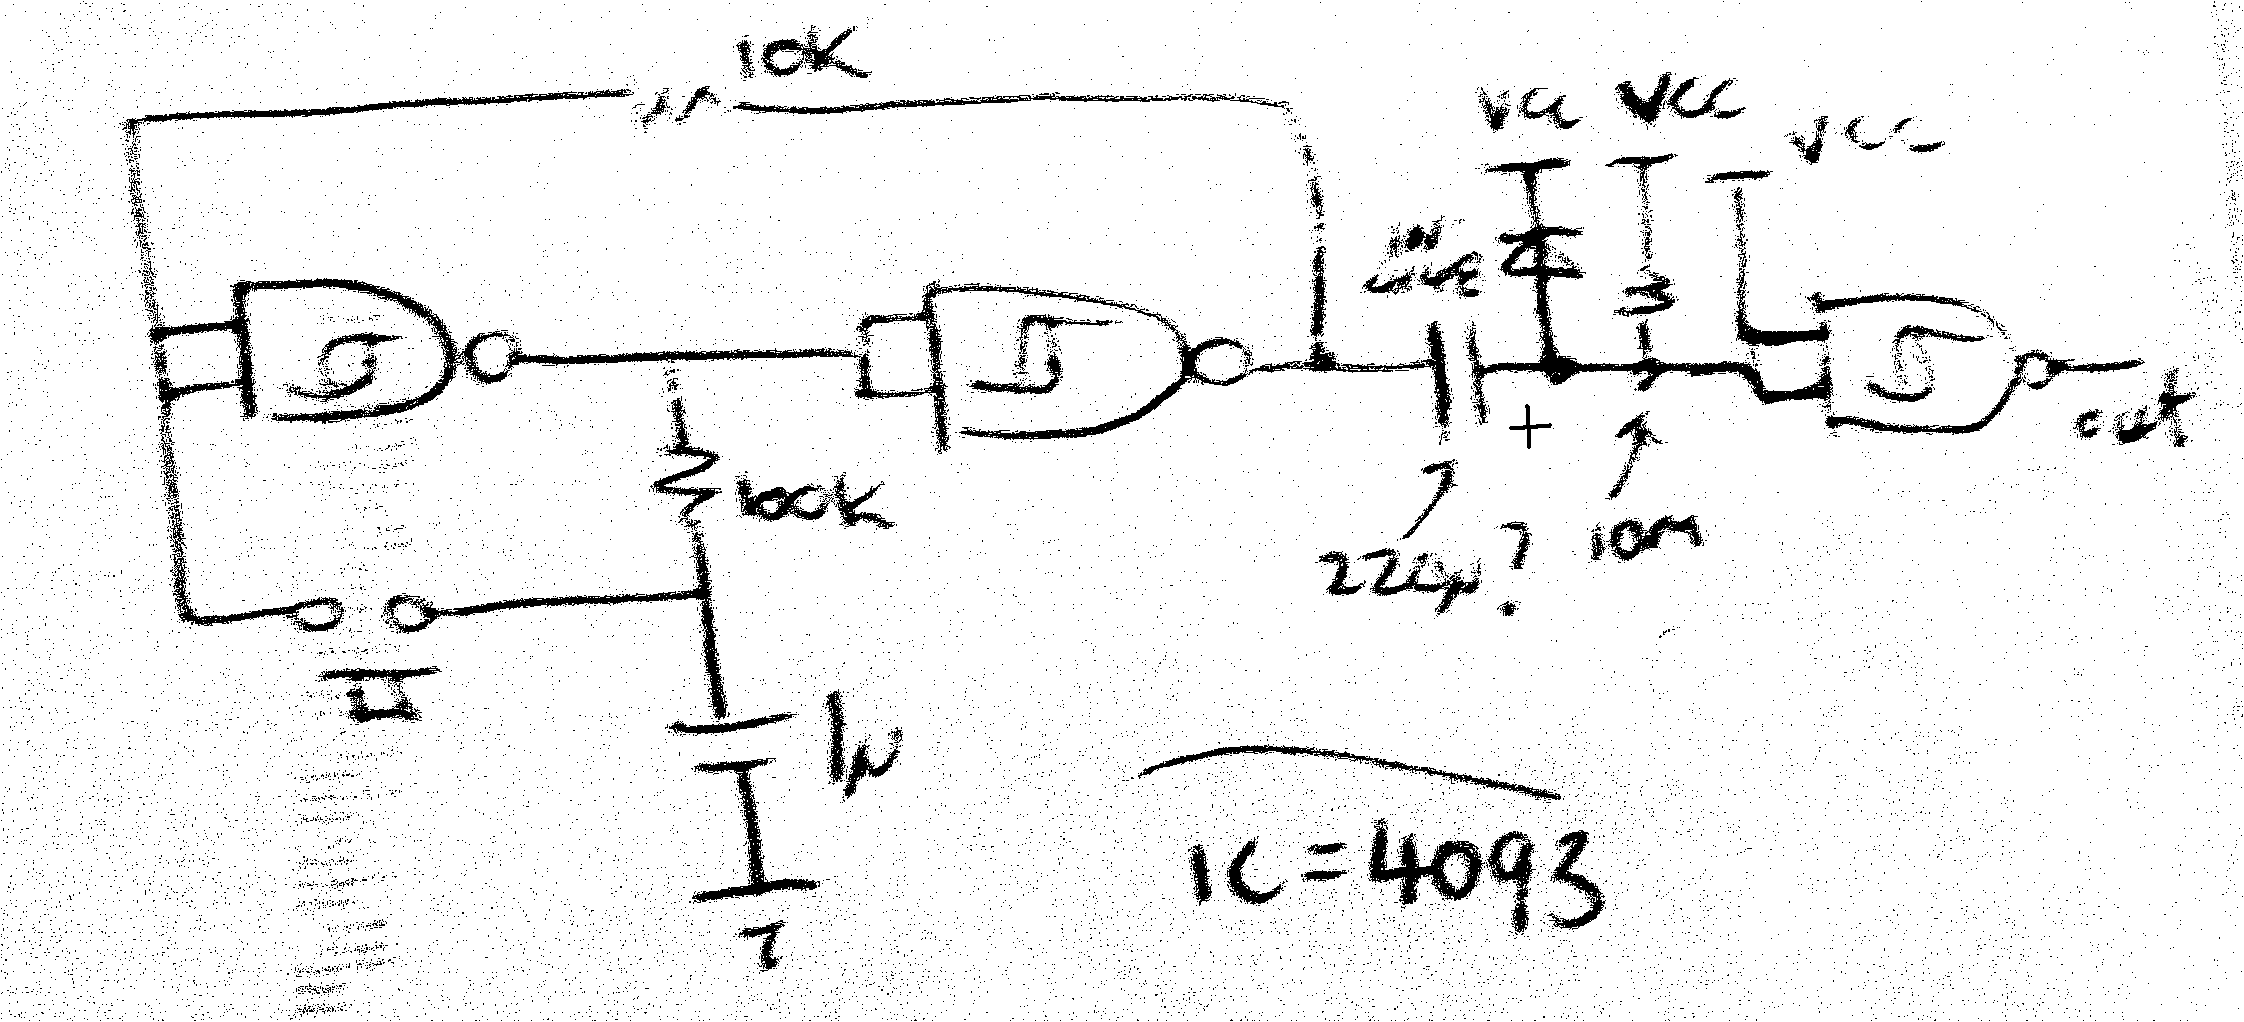 10K
VCC VCC VCC
100K
+
out
220µ?
10M
1µ
IC = 4093